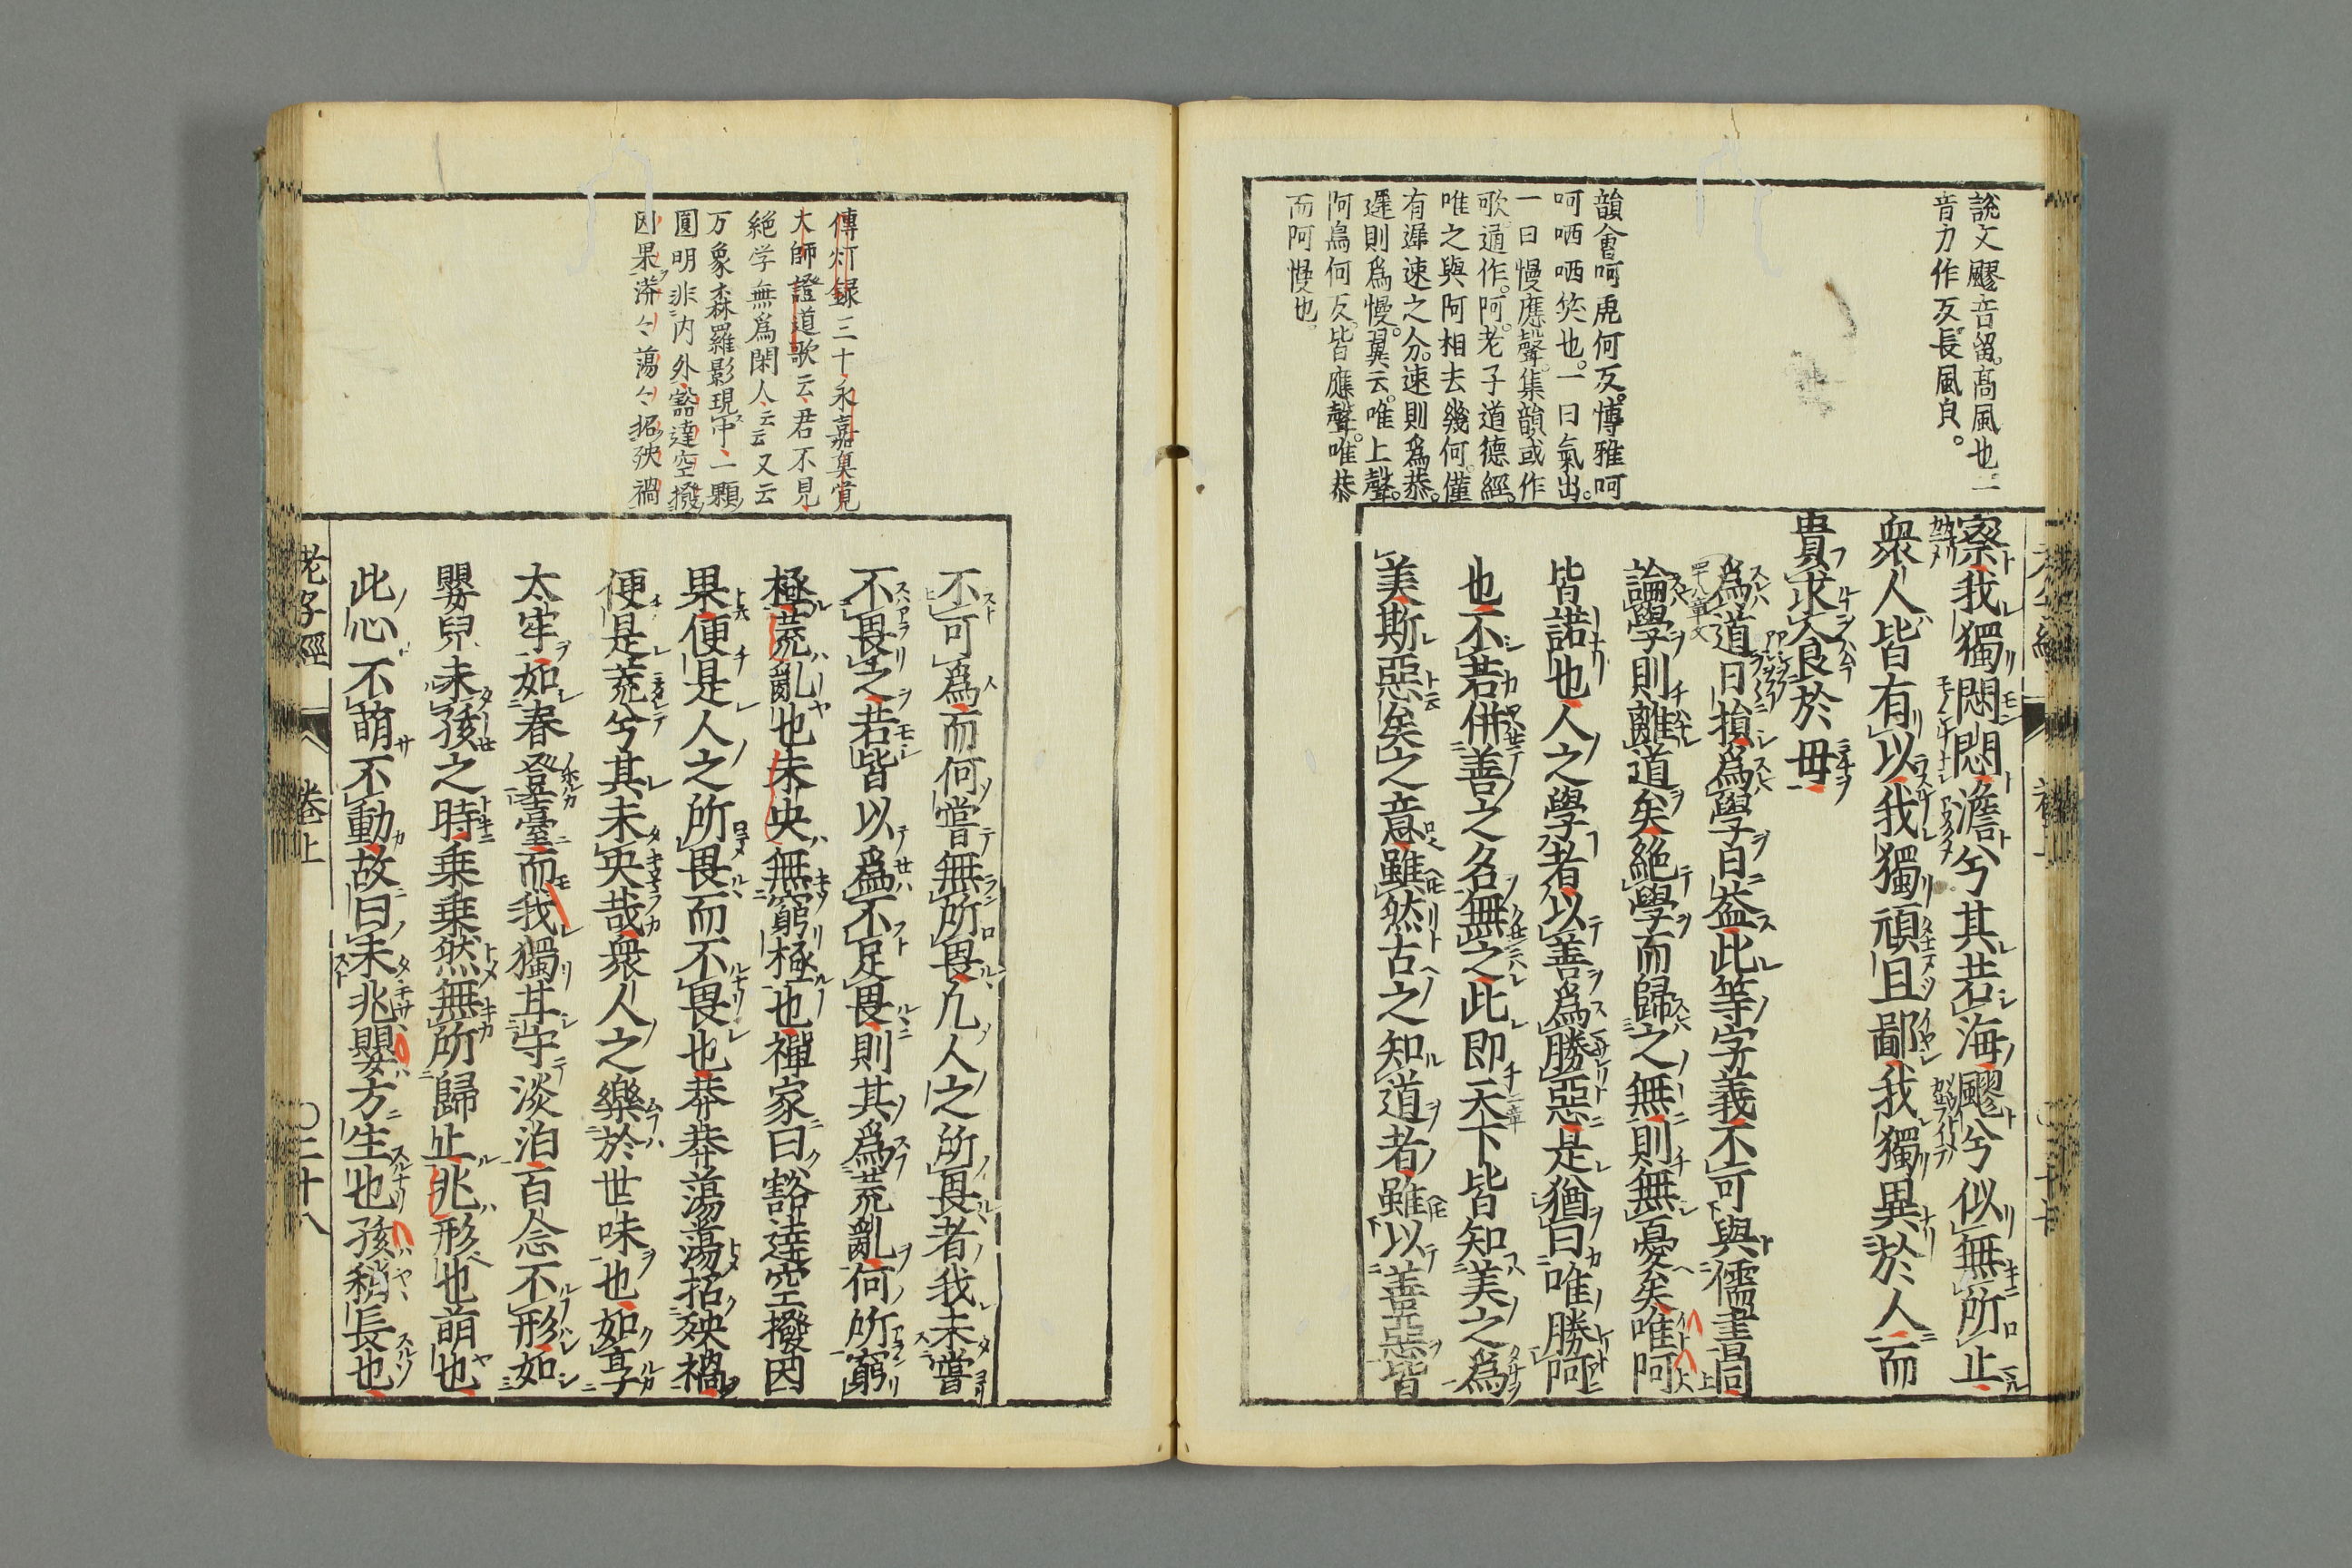 説文飂音留高風也一
音力作反長風皃
韻會呵虎何反博雅呵
呵哂哂笑也一曰氣出
一曰慢應聲集韻或作
歌通作阿老子道德經
唯之與阿相去幾何僅
有遲速之分速則爲恭
遲則爲慢翼云唯上聲
阿烏何反皆應聲唯恭
而阿慢也
察我獨悶悶澹兮其若海飂兮似無所止
衆人皆有以我獨頑且鄙我獨異於人而
貴求食於母
爲道日損爲學日益此等字義不可與儒書同
四十八章文
論學則離道矣絕學而歸之無則無憂矣唯阿
皆諾也人之學者以善爲勝惡是猶曰唯勝阿
也不若併善之名無之此即天下皆知美之爲
二章
美斯惡矣之意雖然古之知道者雖以善惡皆
傳灯録三十永嘉眞覚
大師證道歌云君不見
絶学無爲閑人云云又云
万象森羅影現中一顆
圓明非内外豁達空撥
因果漭々蕩々招殃禍
不可爲而何嘗無所畏凡人之所畏者我未嘗
不畏之若皆以爲不足畏則其爲荒亂何所窮
極荒亂也未央無窮極也禪家曰豁達空撥因
果便是人之所畏而不畏也莽莽蕩蕩招殃禍
便是荒兮其未央哉衆人之樂於世味也如享
太牢如春登臺而我獨甘守淡泊百念不形如
嬰兒未孩之時乗乗然無所歸止兆形也萌也
此心不萌不動故曰未兆嬰方生也孩稍長也
老子經
卷上
〇三十八